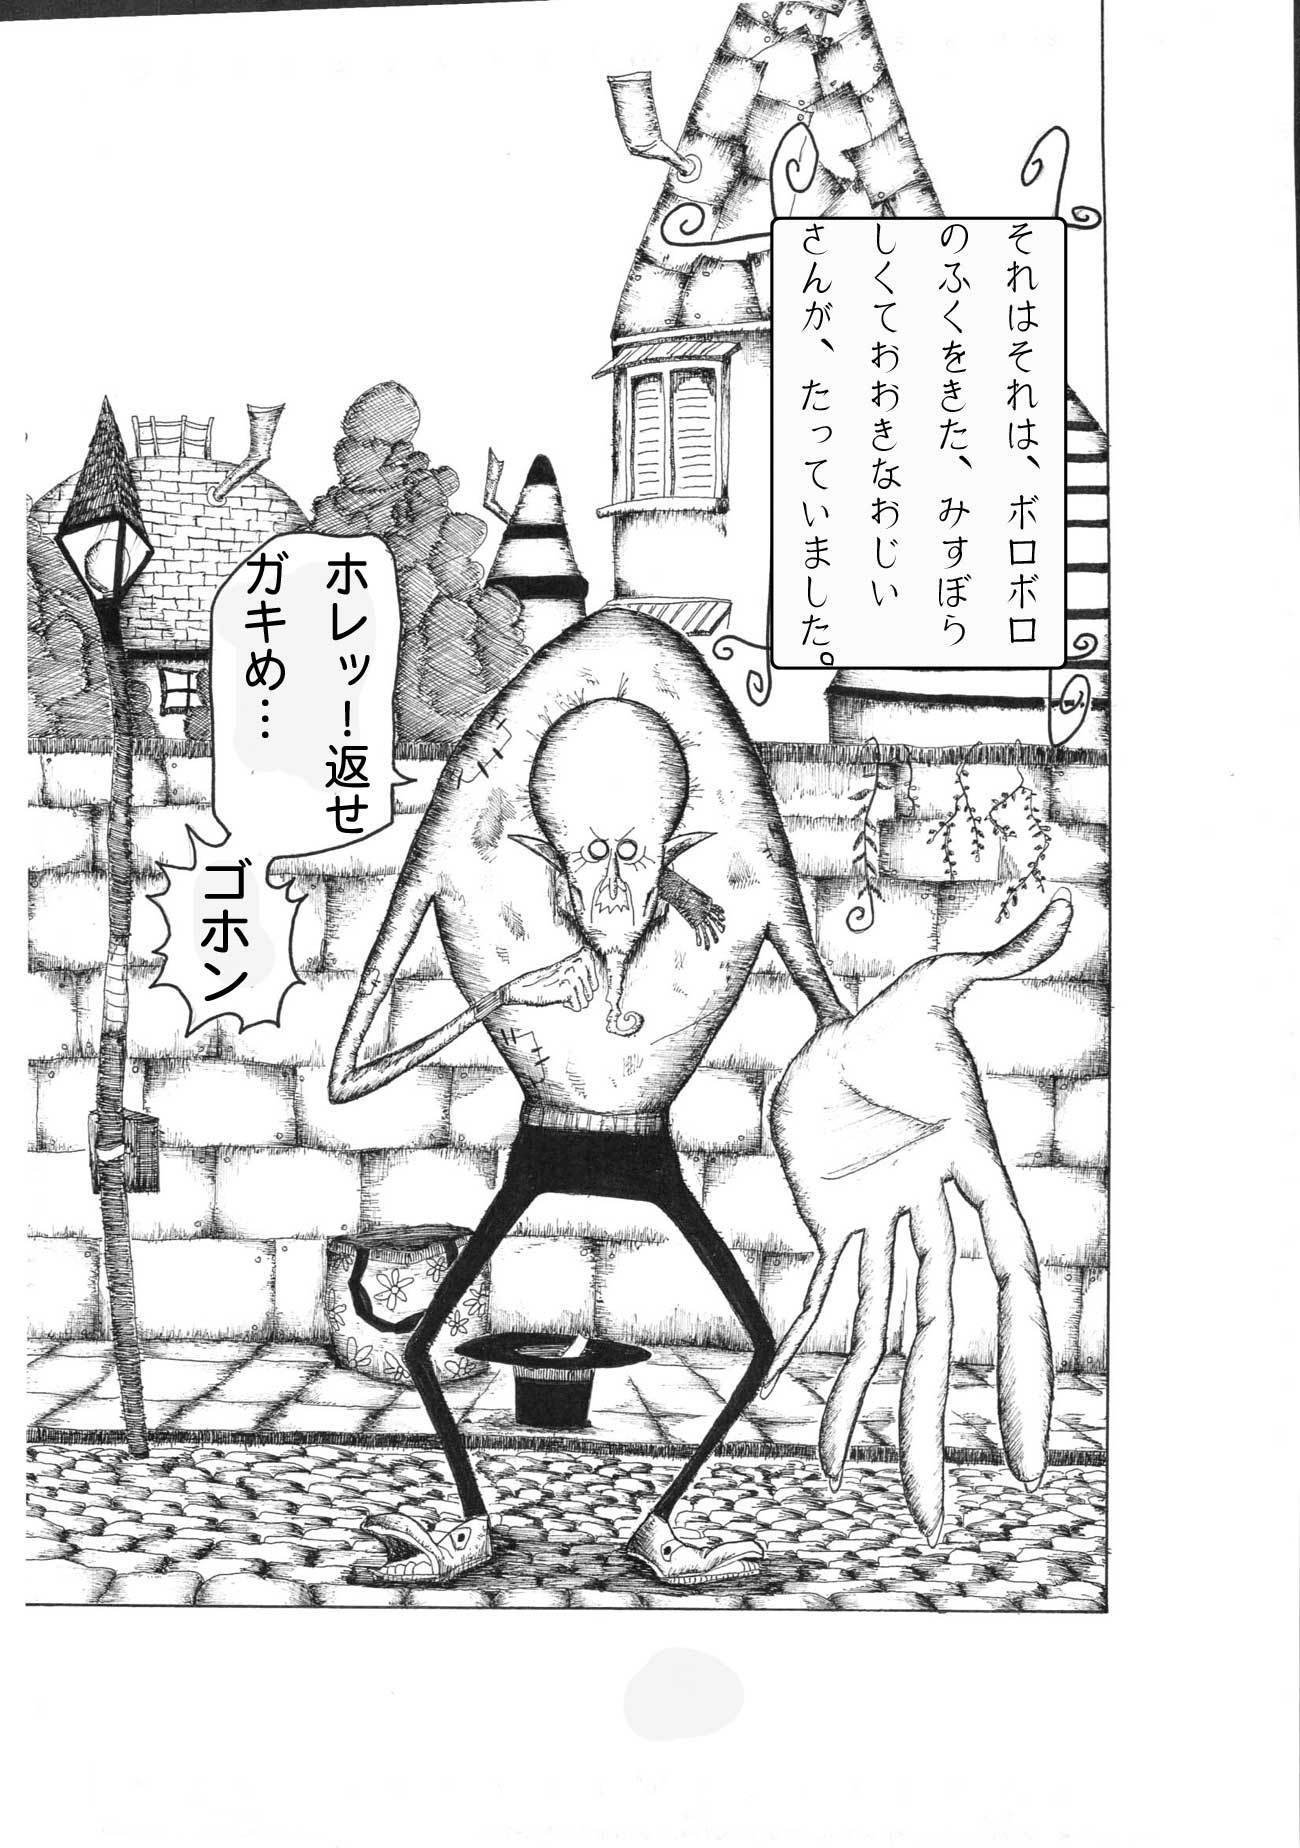 それはそれは、ボロボロ
のふくをきた、みすぼら
しくておおきなおじい
さんが、たっていました。
ホレッ！返せ
ガキめ…
ゴホン